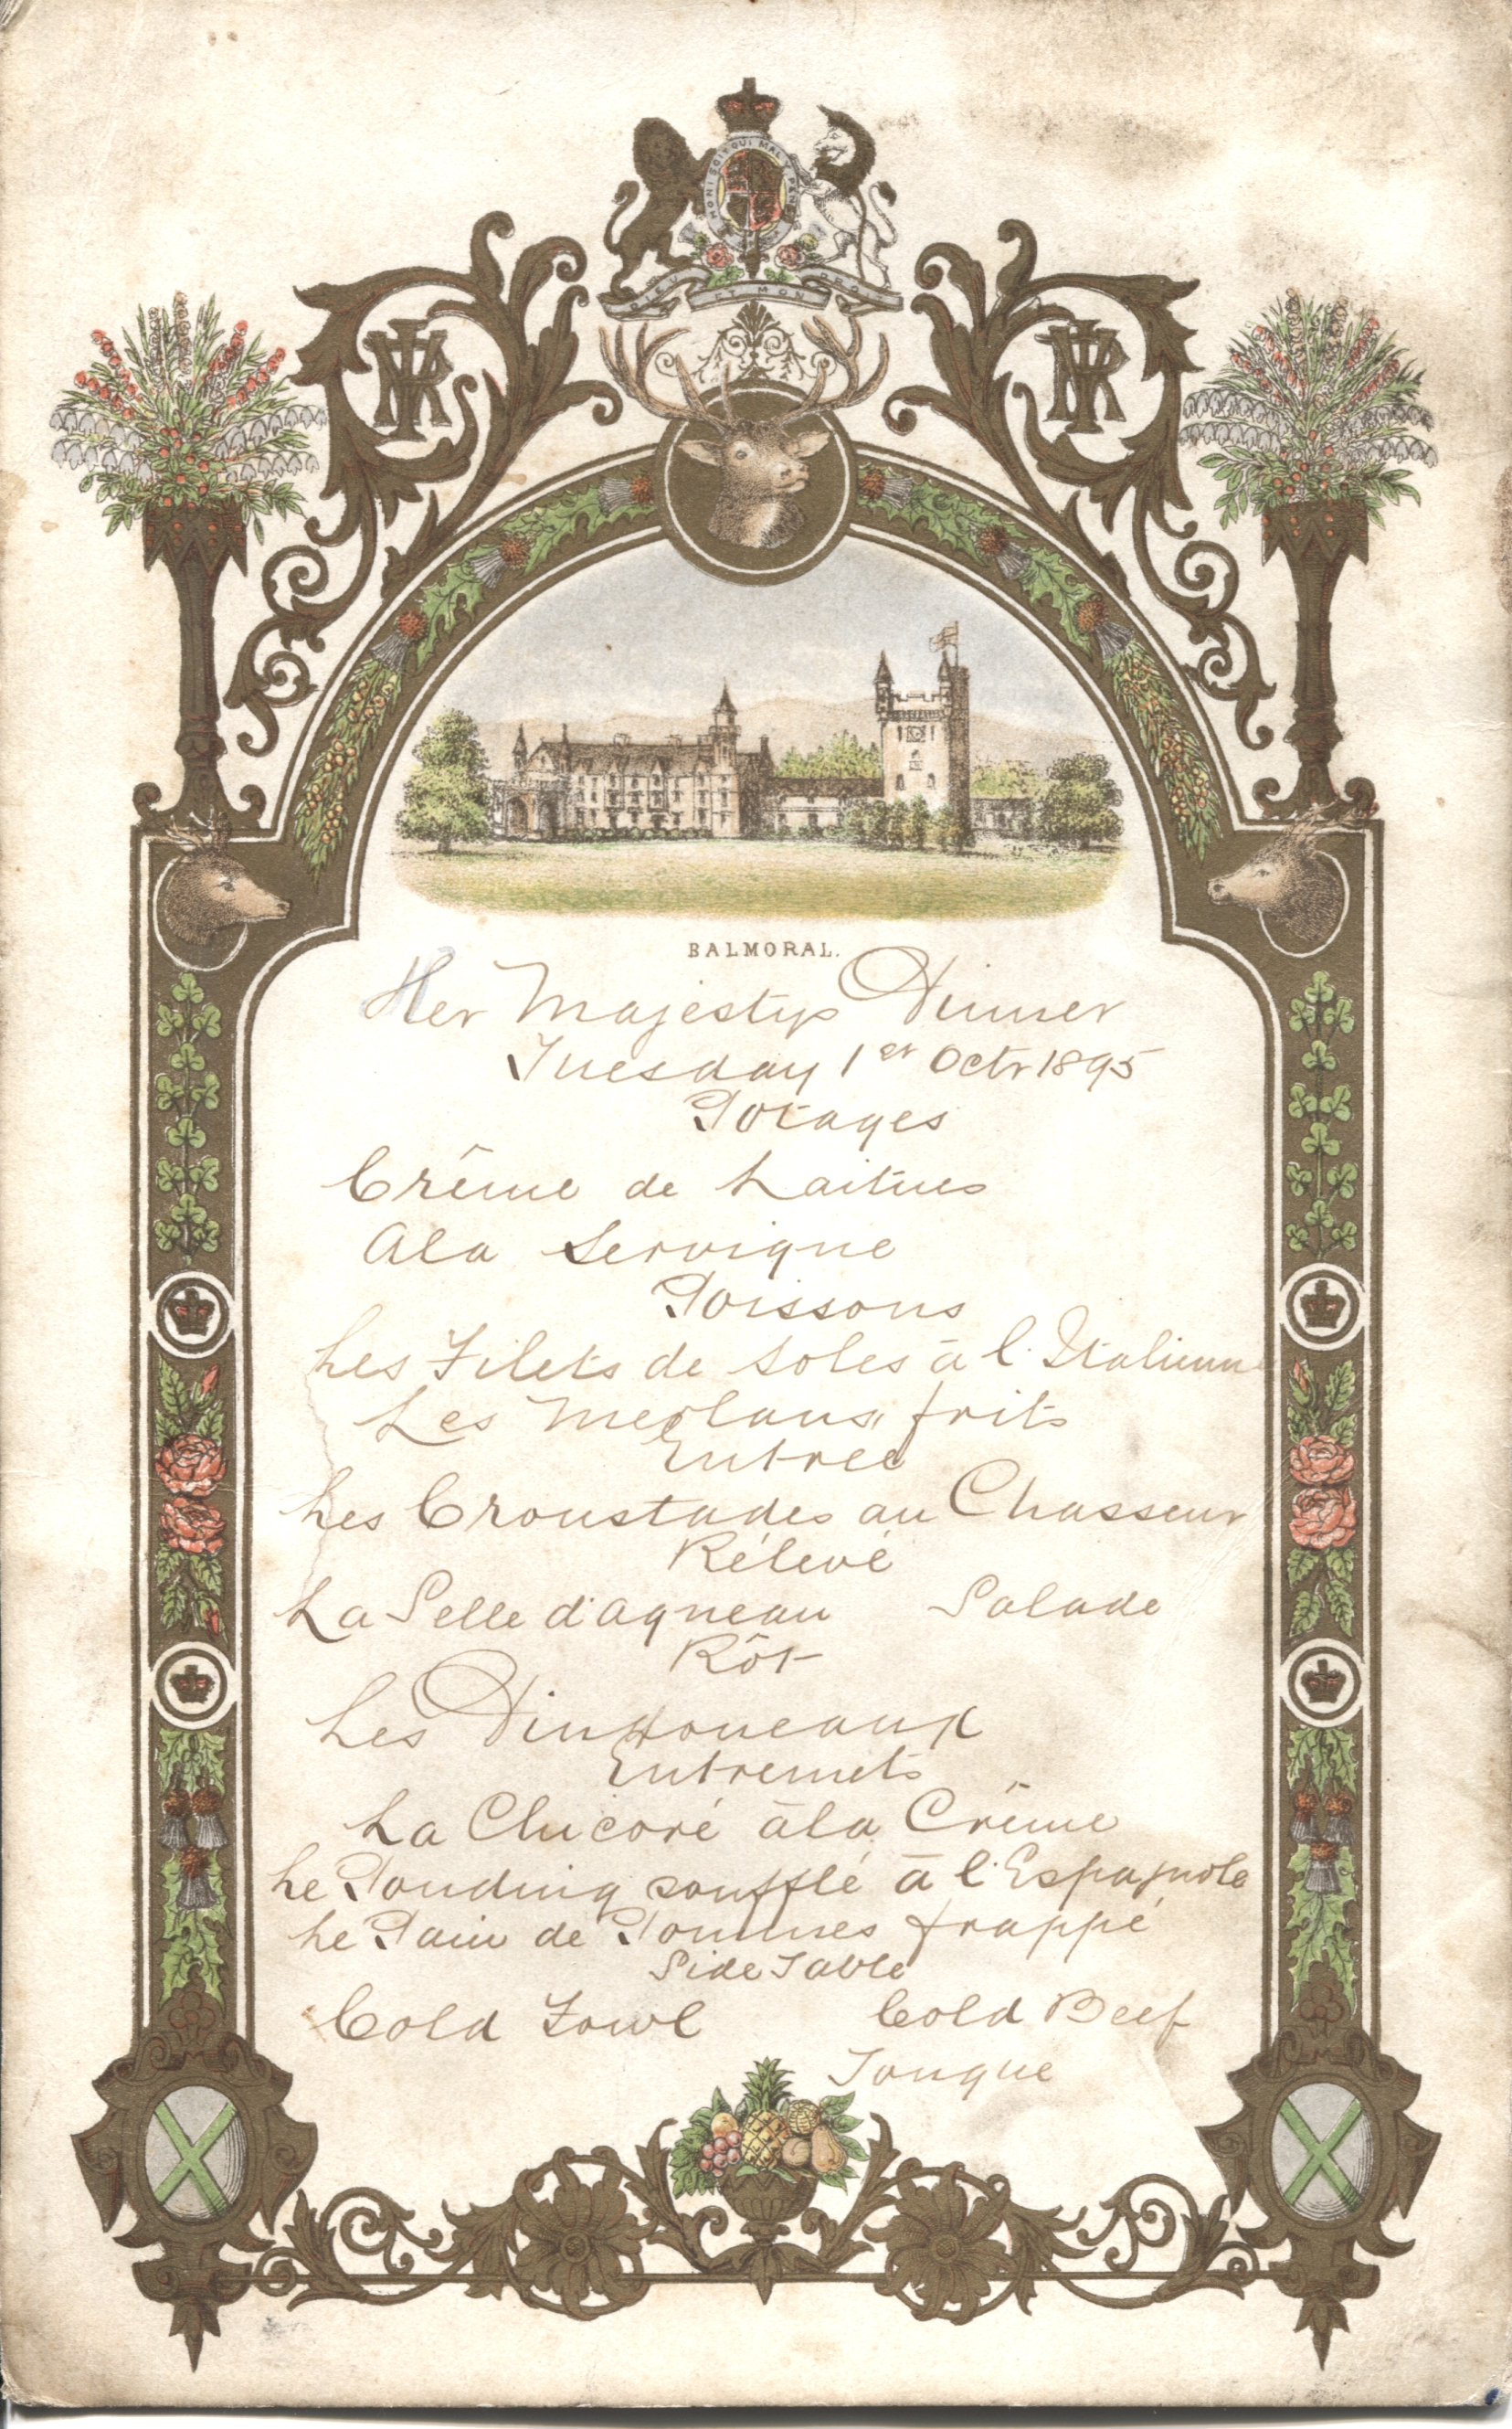 HONI SOIT QUI MAL Y PEN
DIEU ET MON DROIT
VRI VRI
BALMORAL.
Her Majestys Dinner
Tuesday 1st Octr 1895
Potages
Crême de Laitues
A la Servigne
Poissons
Les Filets de Soles à l'Italienne
Les Merlans frits
Entree
Les Croustades au Chasseur
Rélevé
La Selle d'agneau Salade
Rôt
Les Dindoneaux
Entremets
La Chicoré à la Crême
Le Pouding soufflé à l'Espagnole
Le Pain de Pommes frappé
Side Table
Cold Fowl Cold Beef
Tongue